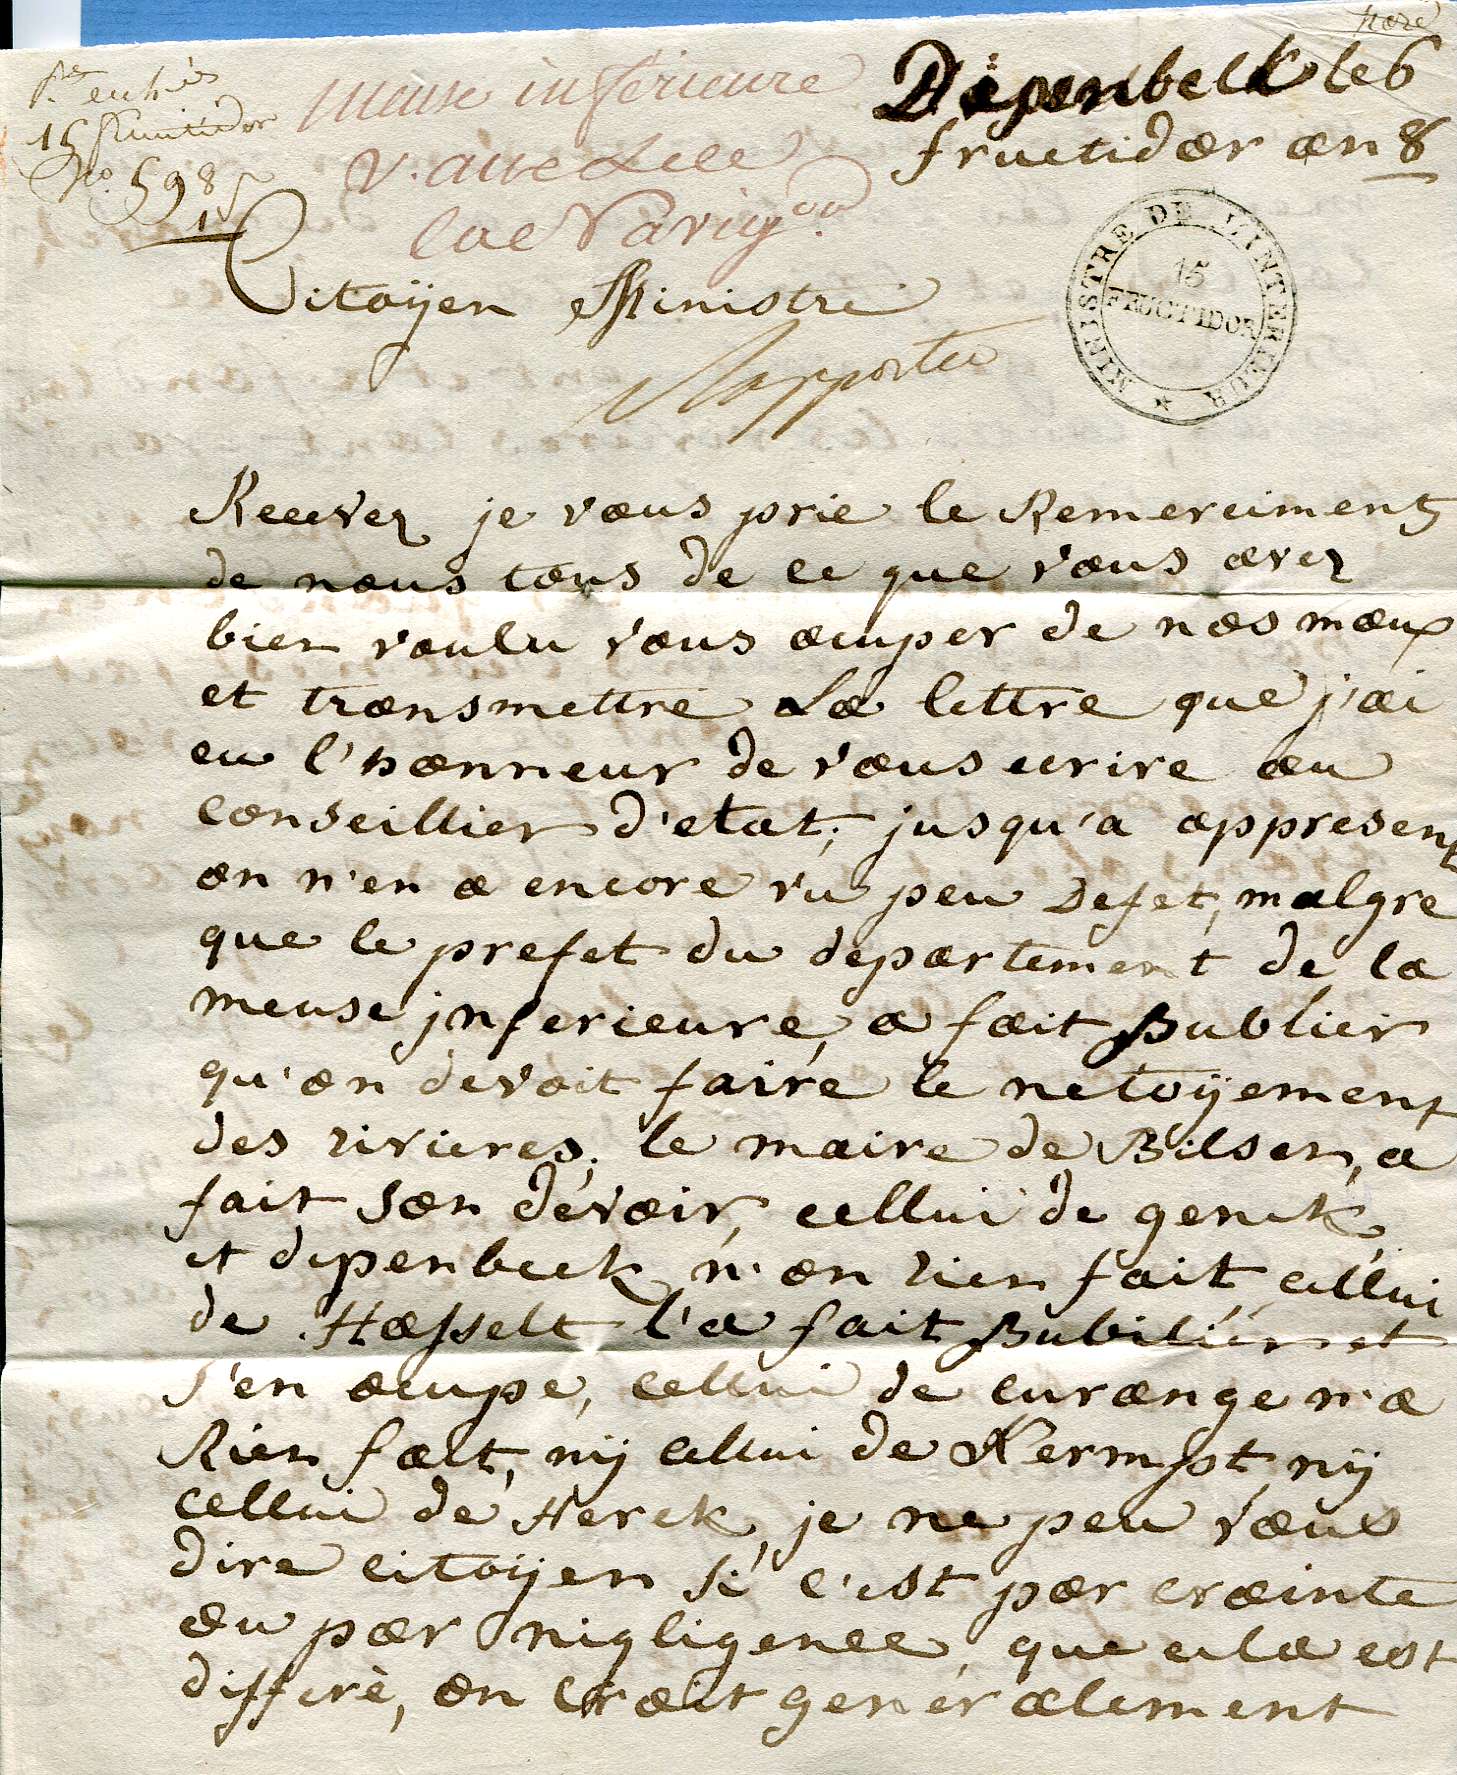 15 fructidor
No. 5985
1
Meuse inferieure
Navig.on
Diepenbeek le 6
fructidor an 8
MINISTRE DE L'INTERIEUR
15
FRUCTIDOR
Citoÿen Ministre
Rapporter
Recever je vous prie le Remerciment
de nous tous de ce que vous aver
bien voulu vous ocuper de nos moux
et transmettre La lettre que j'ai
eu l'honneur de vous ecrire au
conseillier d'etat, jusqu'a appresent
on n'en a encore vu peu Defet, malgre
que le prefet du departement de la
meuse jnferieure, a fait Publier
qu'on devoit faire le netoÿement
des rivieres, le maire de Bilsen, a
fait son devoir, cellui de genck,
et depenbeek n'on rien fait, cellui
de Hasselt l'a fait Pubilier et
s'en ocupe, cellui de curange n'a
Rien fait, nÿ cellui de Kermpt, nÿ
cellui de Herck, je ne peu vous
dire citoÿen si c'est par crainte
ou par nigligence, que cela est
differè, on croit generalement